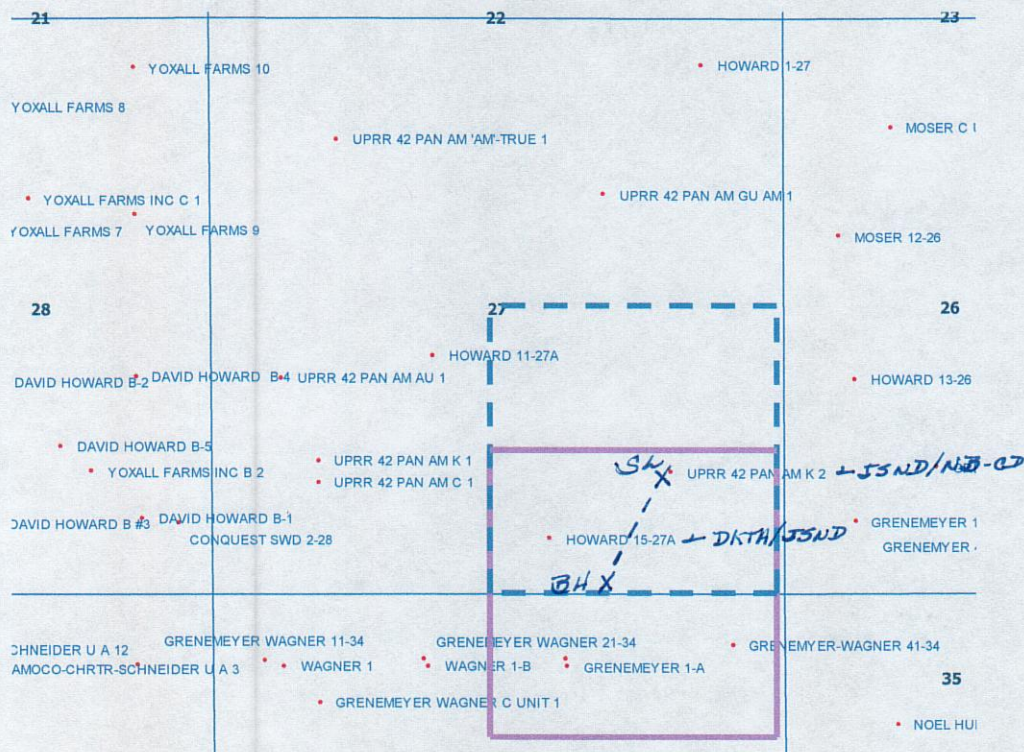 21
22
23
YOXALL FARMS 10
HOWARD 1-27
YOXALL FARMS 8
MOSER C U
UPRR 42 PAN AM 'AM'-TRUE 1
YOXALL FARMS INC C 1
UPRR 42 PAN AM GU AM 1
YOXALL FARMS 7
YOXALL FARMS 9
MOSER 12-26
28
27
26
HOWARD 11-27A
DAVID HOWARD B-2
DAVID HOWARD B-4
UPRR 42 PAN AM AU 1
HOWARD 13-26
DAVID HOWARD B-5
UPRR 42 PAN AM K 1
SL
X
YOXALL FARMS INC B 2
UPRR 42 PAN AM K 2
JSND/NB-CD
UPRR 42 PAN AM C 1
DAVID HOWARD B #3
DAVID HOWARD B-1
GRENEMEYER 1
CONQUEST SWD 2-28
HOWARD 15-27A
DKTA/JSND
GRENEMYER
BH X
SCHNEIDER U A 12
GRENEMEYER WAGNER 11-34
GRENEMEYER WAGNER 21-34
GRENEMYER-WAGNER 41-34
AMOCO-CHRTR-SCHNEIDER U A 3
WAGNER 1
WAGNER 1-B
GRENEMEYER 1-A
35
GRENEMEYER WAGNER C UNIT 1
NOEL HUI